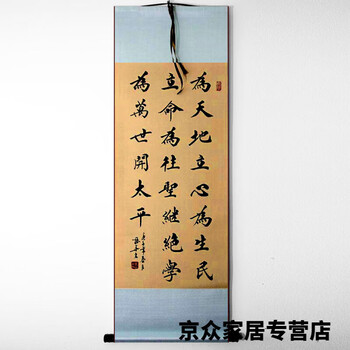 為天地立心為生民
立命為往聖継絕學
為萬世開太平
京众家居专营店